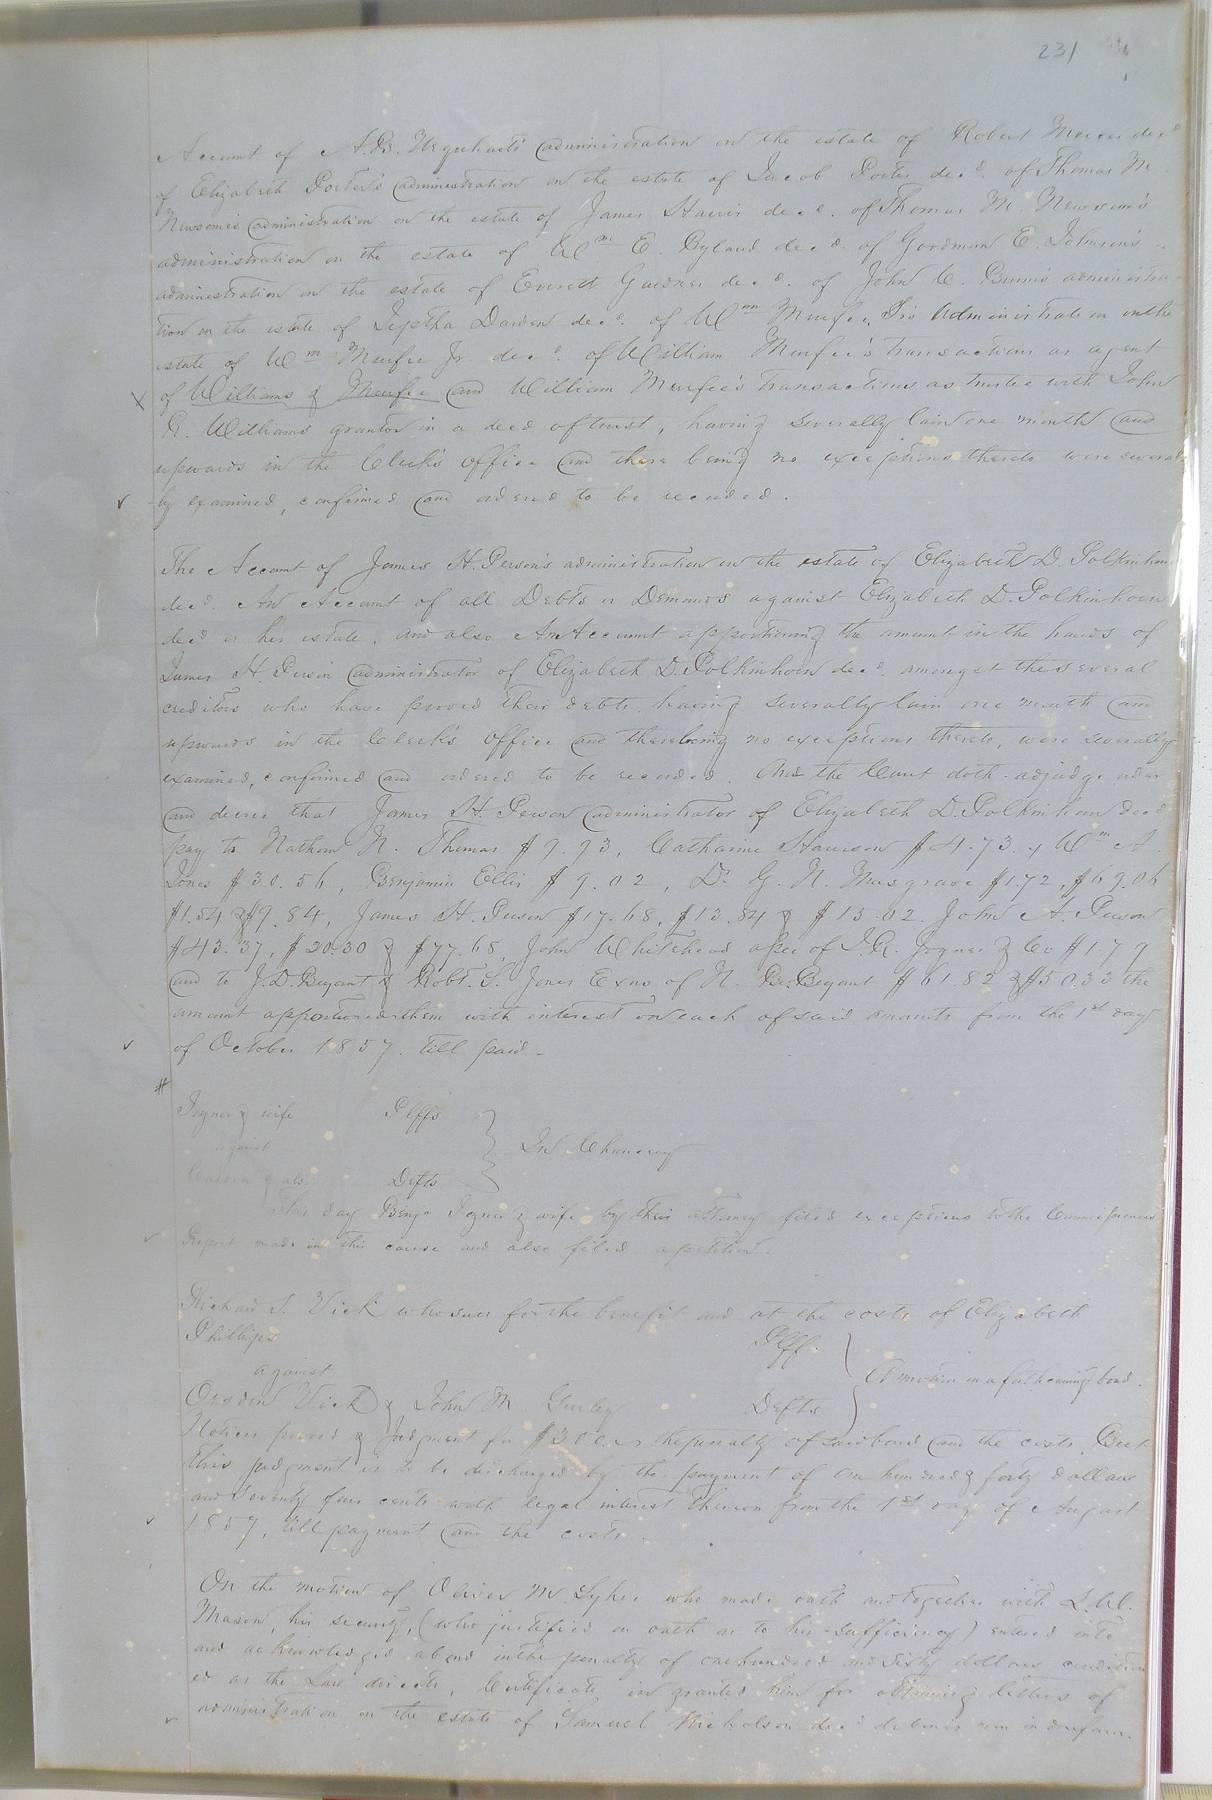 231
Account of A.B. Urquhart's administration on the estate of Robert Mercer decd
of Elizabeth Porter's administration on the estate of Jacob Porter decd. of Thomas M
Newsom's administration on the estate of James Harris decd. of Thomas M Newsom's
administration on the estate of Wm E. Ryland decd. of Goodman E. Johnson's
administration on the estate of Everett Gardner decd. of John C. Bunn's administra-
tion on the estate of Jeptha Darden decd. of Wm Murfee Sr's Administration on the
estate of Wm Murfee Jr. decd. of William Murfee's transactions as agent
X of Williams & Murfee and William Murfee's transactions as trustee with John
R. Williams grantor in a deed of trust, having severally lain one month and
upwards in the Clerk's office and there being no exceptions thereto were several-
ly examined, confirmed and ordered to be recorded.
The Account of James H. Person's administration on the estate of Elizabeth D. Polkinhorn
decd. An Account of all Debts or Demands against Elizabeth D. Polkinhorn
decd or her estate, and also An Account apportioning the amount in the hands of
James H. Person administrator of Elizabeth D. Polkinhorn decd. amongst the several
creditors who have proved their debts having severally lain one month and
upwards in the Clerk's office and there being no exceptions thereto, were severally
examined, confirmed and ordered to be recorded. And the Court doth adjudge order
and decree that James H. Person administrator of Elizabeth D. Polkinhorn decd
pay to Nathan N. Thomas $9.93, Catharine Harrison $4.73. & Wm A
Jones $30.56, Benjamin Ellis $9.02, Dr G. N. Musgrave $1.72, $69.06
$1.54 & $9.84, James H. Person $17.68, $13.84 & $15.02. John A. Person
$43.37, $20.30 & $77.68, John Whitehead assee of J. R. Joyner & Co $1.79
and to J. D. Bryant & Robt. S. Jones Exors of N. B. Bryant $61.82 & $50.33 the
amount apportioned them with interest on each of said amounts from the 1st day
of October 1857. till paid.
#
Joyner & wife Plffs
against In Chancery
& als Defts
This day Benja Joyner & wife by their attorney filed exceptions to the Commissioners
Report made in this cause and also filed a petition.
Richard S. Vick who sues for the benefit and at the costs of Elizabeth
Phillips Plff.
against A motion on a forthcoming bond.
Vick & John M Gurley Defts
Notice proved & Judgment for $300. the penalty of said bond and the costs. But
this judgment is to be discharged by the payment of one hundred & forty dollars
and Seventy four cents with legal interest thereon from the 1st day of August
1857, till payment and the costs.
On the motion of Oliver M Sykes who made oath and together with L. W.
Mason, his security, (who justified on oath as to his sufficiency) entered into
and acknowledged a bond in the penalty of one hundred and Sixty dollars condition-
ed as the Law directs, Certificate is granted him for obtaining letters of
administration on the estate of Samuel Nicholson decd de bonis non in due form.